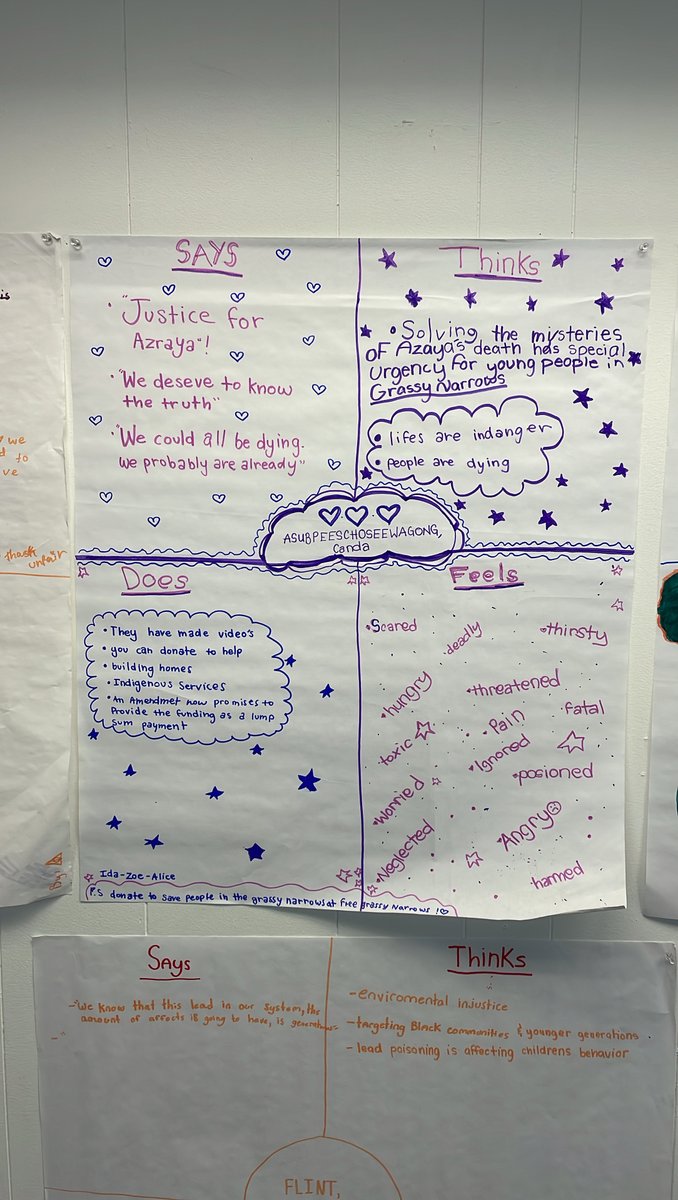 SAYS
• "Justice for
Azraya"!
• "We deseve to know
the truth"
• "We could all be dying.
we probably are already"
Thinks
• Solving the mysteries
OF Azaya's death has special
Urgency for young people in
Grassy Narrows
• lifes are indanger
• People are dying
ASUBPEESCHOSEEWAGONG,
Canda
Does
• They have made video's
• you can donate to help
• building homes
• Indigenous Services
• An Amendmet now promises to
Provide the funding as a lump
sum payment
Ida-Zoe-Alice
P.S donate to save people in the grassy narrows at free grassy Narrows !
Feels
• Scared
deadly
• thirsty
• hungry
• threatened
• Pain
fatal
toxic
• Ignored
• posioned
• Worried
• Angry
• Neglected
harmed
is
we
d to
ve
thask
unfair
Says
- "We know that this lead in our system, the
amount of affects is going to have, is generations
- "
Thinks
- enviromental injustice
- targeting Black communities & younger generations.
- lead poisoning is affecting childrens behavior
FLINT,